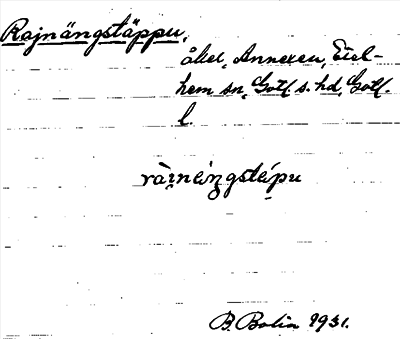 Rajnängstäppu,
åker, Annexen, Etel-
hem sn, Gotl. s. hd, Gotl.
l.
ràıne̱ŋgstèpu
B. Bolin 1931.